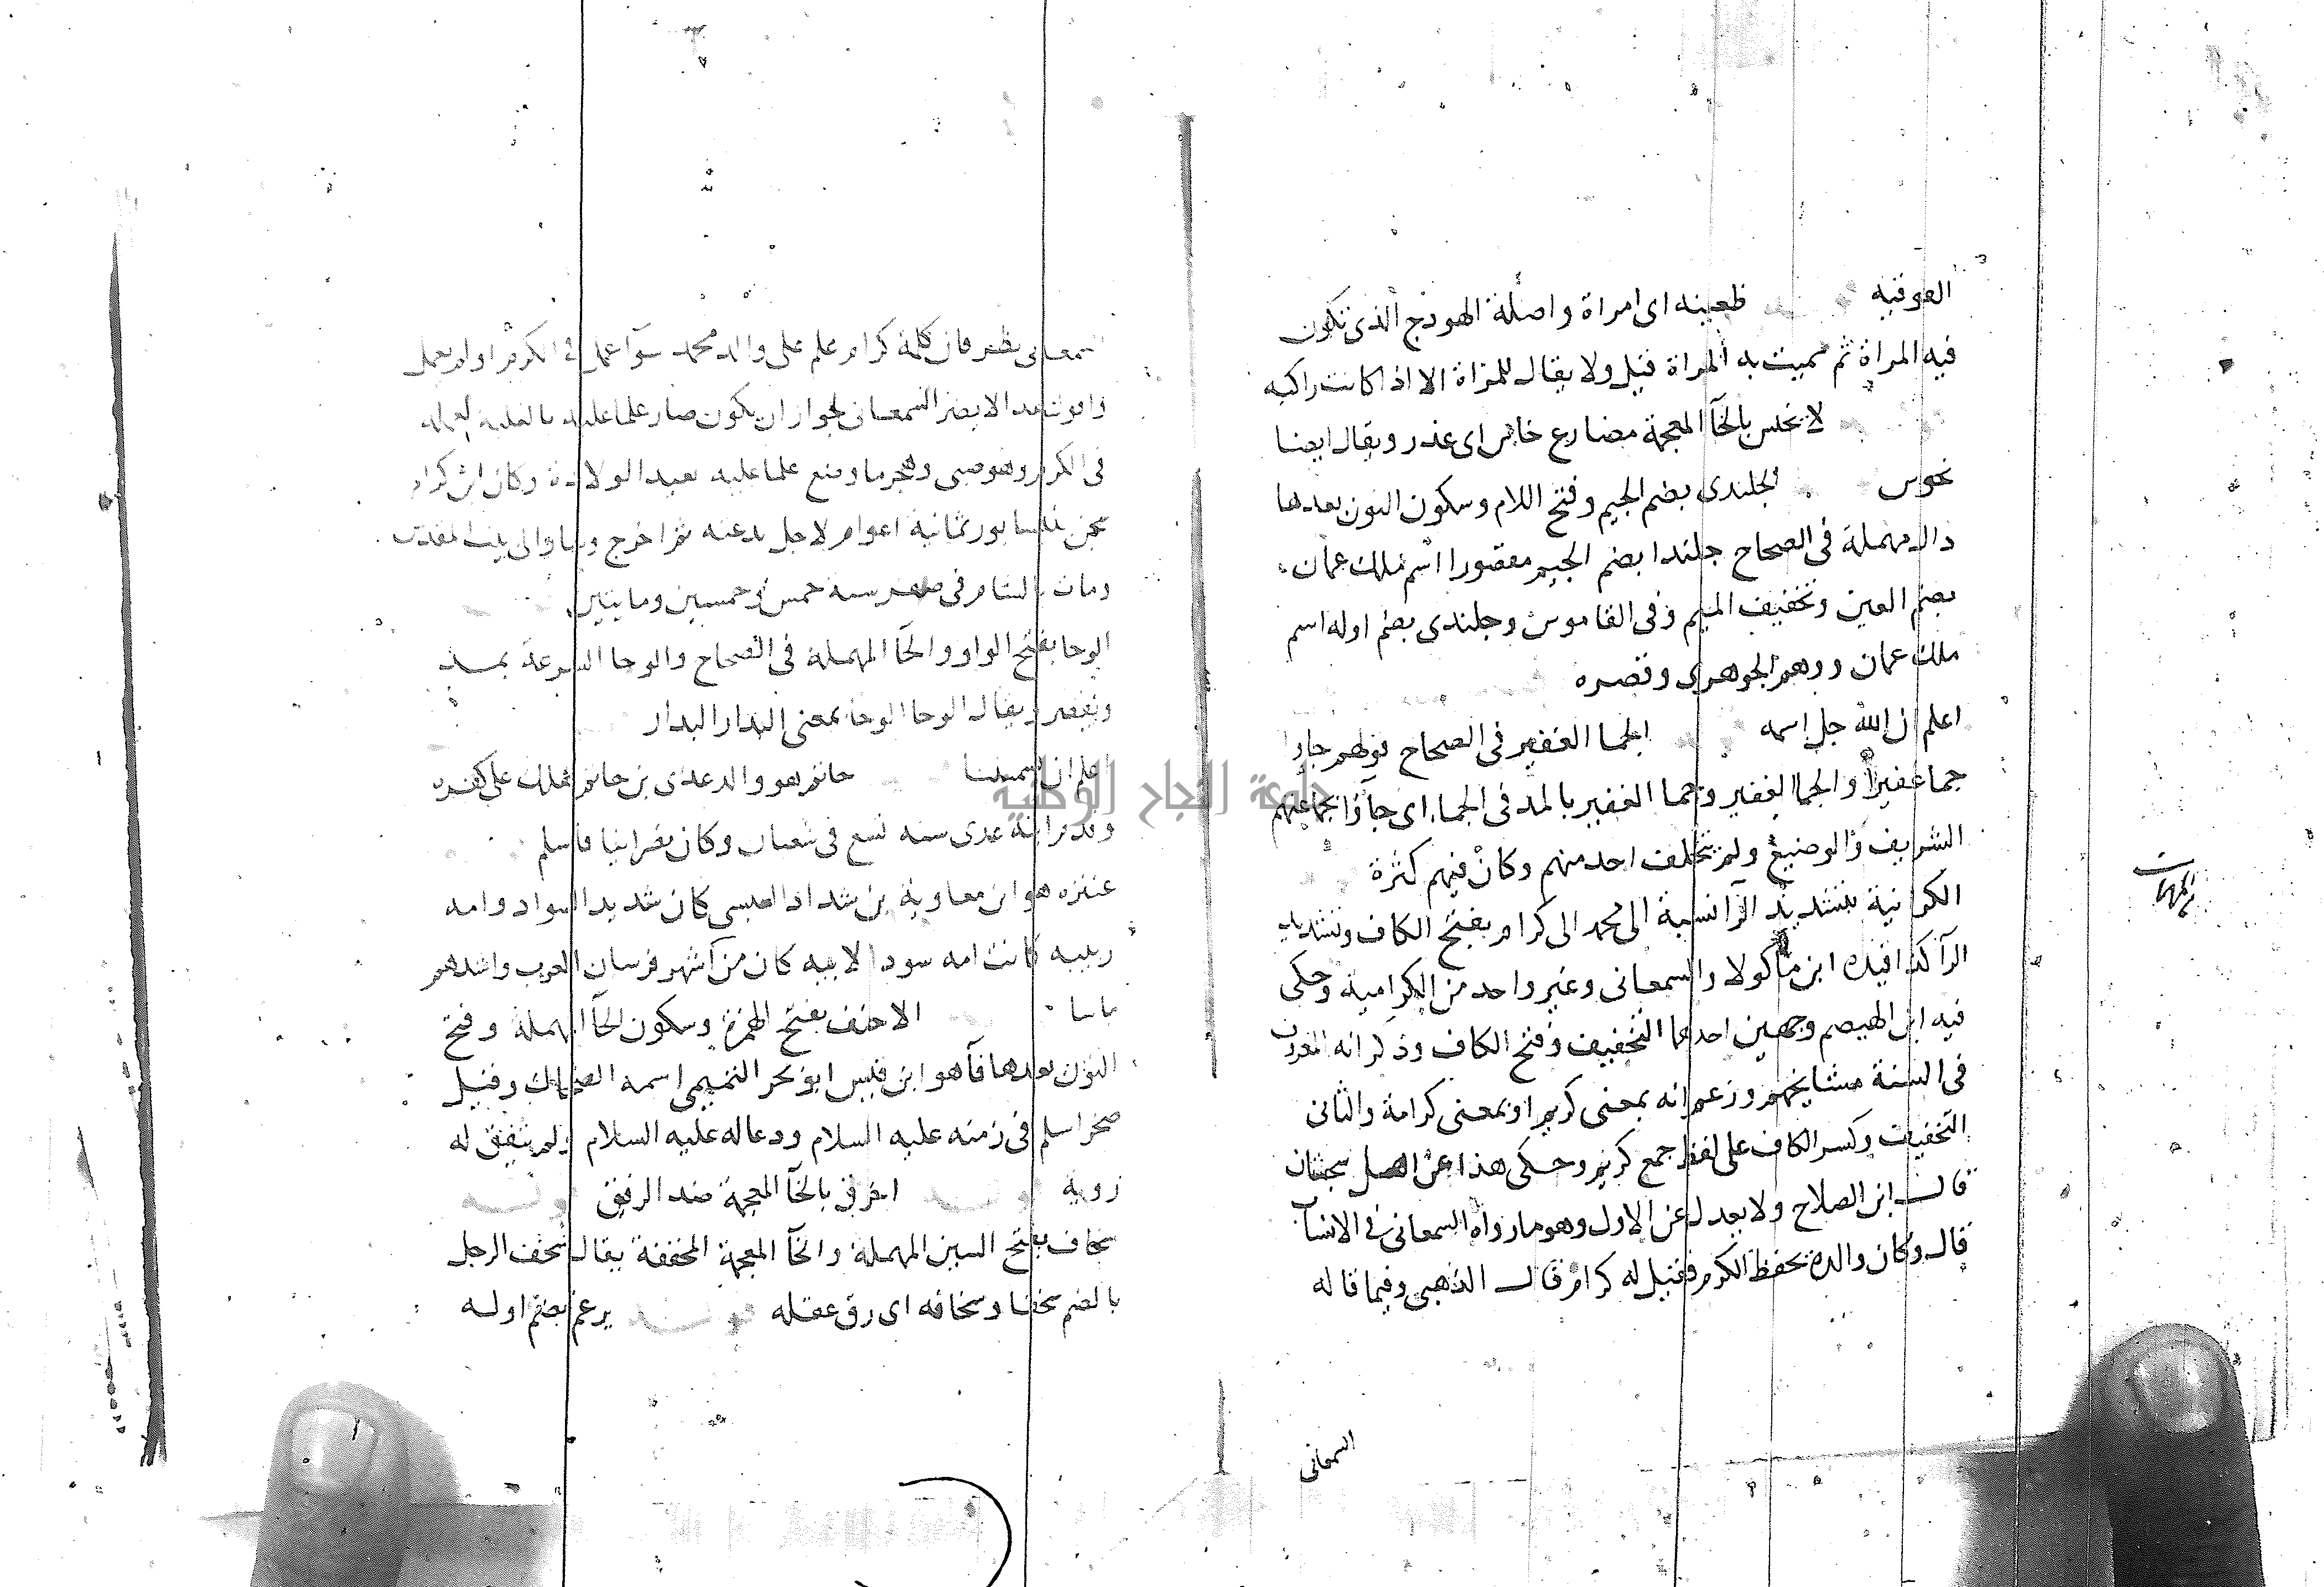 الفوقيه ظعينه اى امراة واصلة الهودج الذى تكون
فيه المراة ثم سميت به المراة قيل ولا يقال للمراة الا اذا كانت راكبه
لا يخلس بالخآ المعجمة مضارع خاس اى غدر ويقال ايضا
نخوس الجلندى بضم الجيم وفتح اللام وسكون النون بعدها
دال مهملة فى الصحاح جلندا بضم الجيم مقصورا اسم ملك عمان
بضم العين وتخفيف الميم وفى القاموس وجلندى بضم اوله اسم
ملك عمان ووهم الجوهرى وقصره
اعلم ان الله جل اسمه الجما الغفير فى الصحاح قولهم جاوا
جما غفيرا والجما الغفير وجما الغفير بالمد فى الجماء اى جآوا بجماعتهم
الشريف والوضيع ولم يتخلف احد منهم وكان فيهم كثرة
الكرامية بتشديد الرآ نسبة الى محمد الى كرام بفتح الكاف وتشديد
الرآ كذا قيده ابن ماكولا والسمعانى وغير واحد من الكرامية وحكى
فيه ابن الهيصم وجهين احدهما التخفيف وفتح الكاف وذكر انه المعروف
فى السنة مشايخهم وزعم انه بمعنى كريم او بمعنى كرامة والثانى
التخفيف وكسر الكاف على لفظ جمع كريم وحكى هذا عن اهل سجستان
قال ابن الصلاح ولا يعدل عن الاول وهو ما رواه السمعانى فى الانساب
قال وكان والده يحفظ الكرم فقيل له كرام قال الذهبى وفيما قاله
السمعانى
السمعانى نظر فان كلمة كرام علم على والد محمد سوآ عمل فى الكرم او لم يعمل
لا يضر السمعانى لجواز ان يكون صار علما عليه بالغلبة لعمله
فى الكرم وهو صبى وهجر ما وضع علما عليه بعيد الولادة وكان ابن كرام
سجن بنيسابور ثمانية اعوام لاجل بدعته ثم اخرج وسار الى بيت المقدس
ومات بالشام فى صفر سنة خمس وخمسين ومايتين
الوحا بفتح الواو والحآ المهملة فى الصحاح والوحا السرعة يمد
ويقصر ويقال الوحا الوحا بمعنى البدار البدار
اعلم ان حاتم هو والد عدى بن حاتم هلك على كفره
وقدم ابنه عدى سنه تسع فى شعبان وكان نصرانيا فاسلم
عنتره هو ابن معاوية بن شداد العبسى كان شديد السواد وامه
زبيبه كانت امه سودا لابيه كان من اشهر فرسان العرب واشدهم
باسا الاحنف بفتح الهمزة وسكون الحآ المهملة وفتح
النون بعدها فآ هو ابن قيس ابو بحر التميمى اسمه الضحاك وقيل
صخر اسلم فى زمنه عليه السلام ودعا له عليه السلام ولم يتفق له
روية اخرق بالخآ المعجمة ضد الرفيق
سخاف بفتح السين المهملة والخآ المعجمة المخففة يقال سخف الرجل
بالضم سخفا وسخافه اى رق عقله يرغم بضم اوله
جامعة النجاح الوطنية